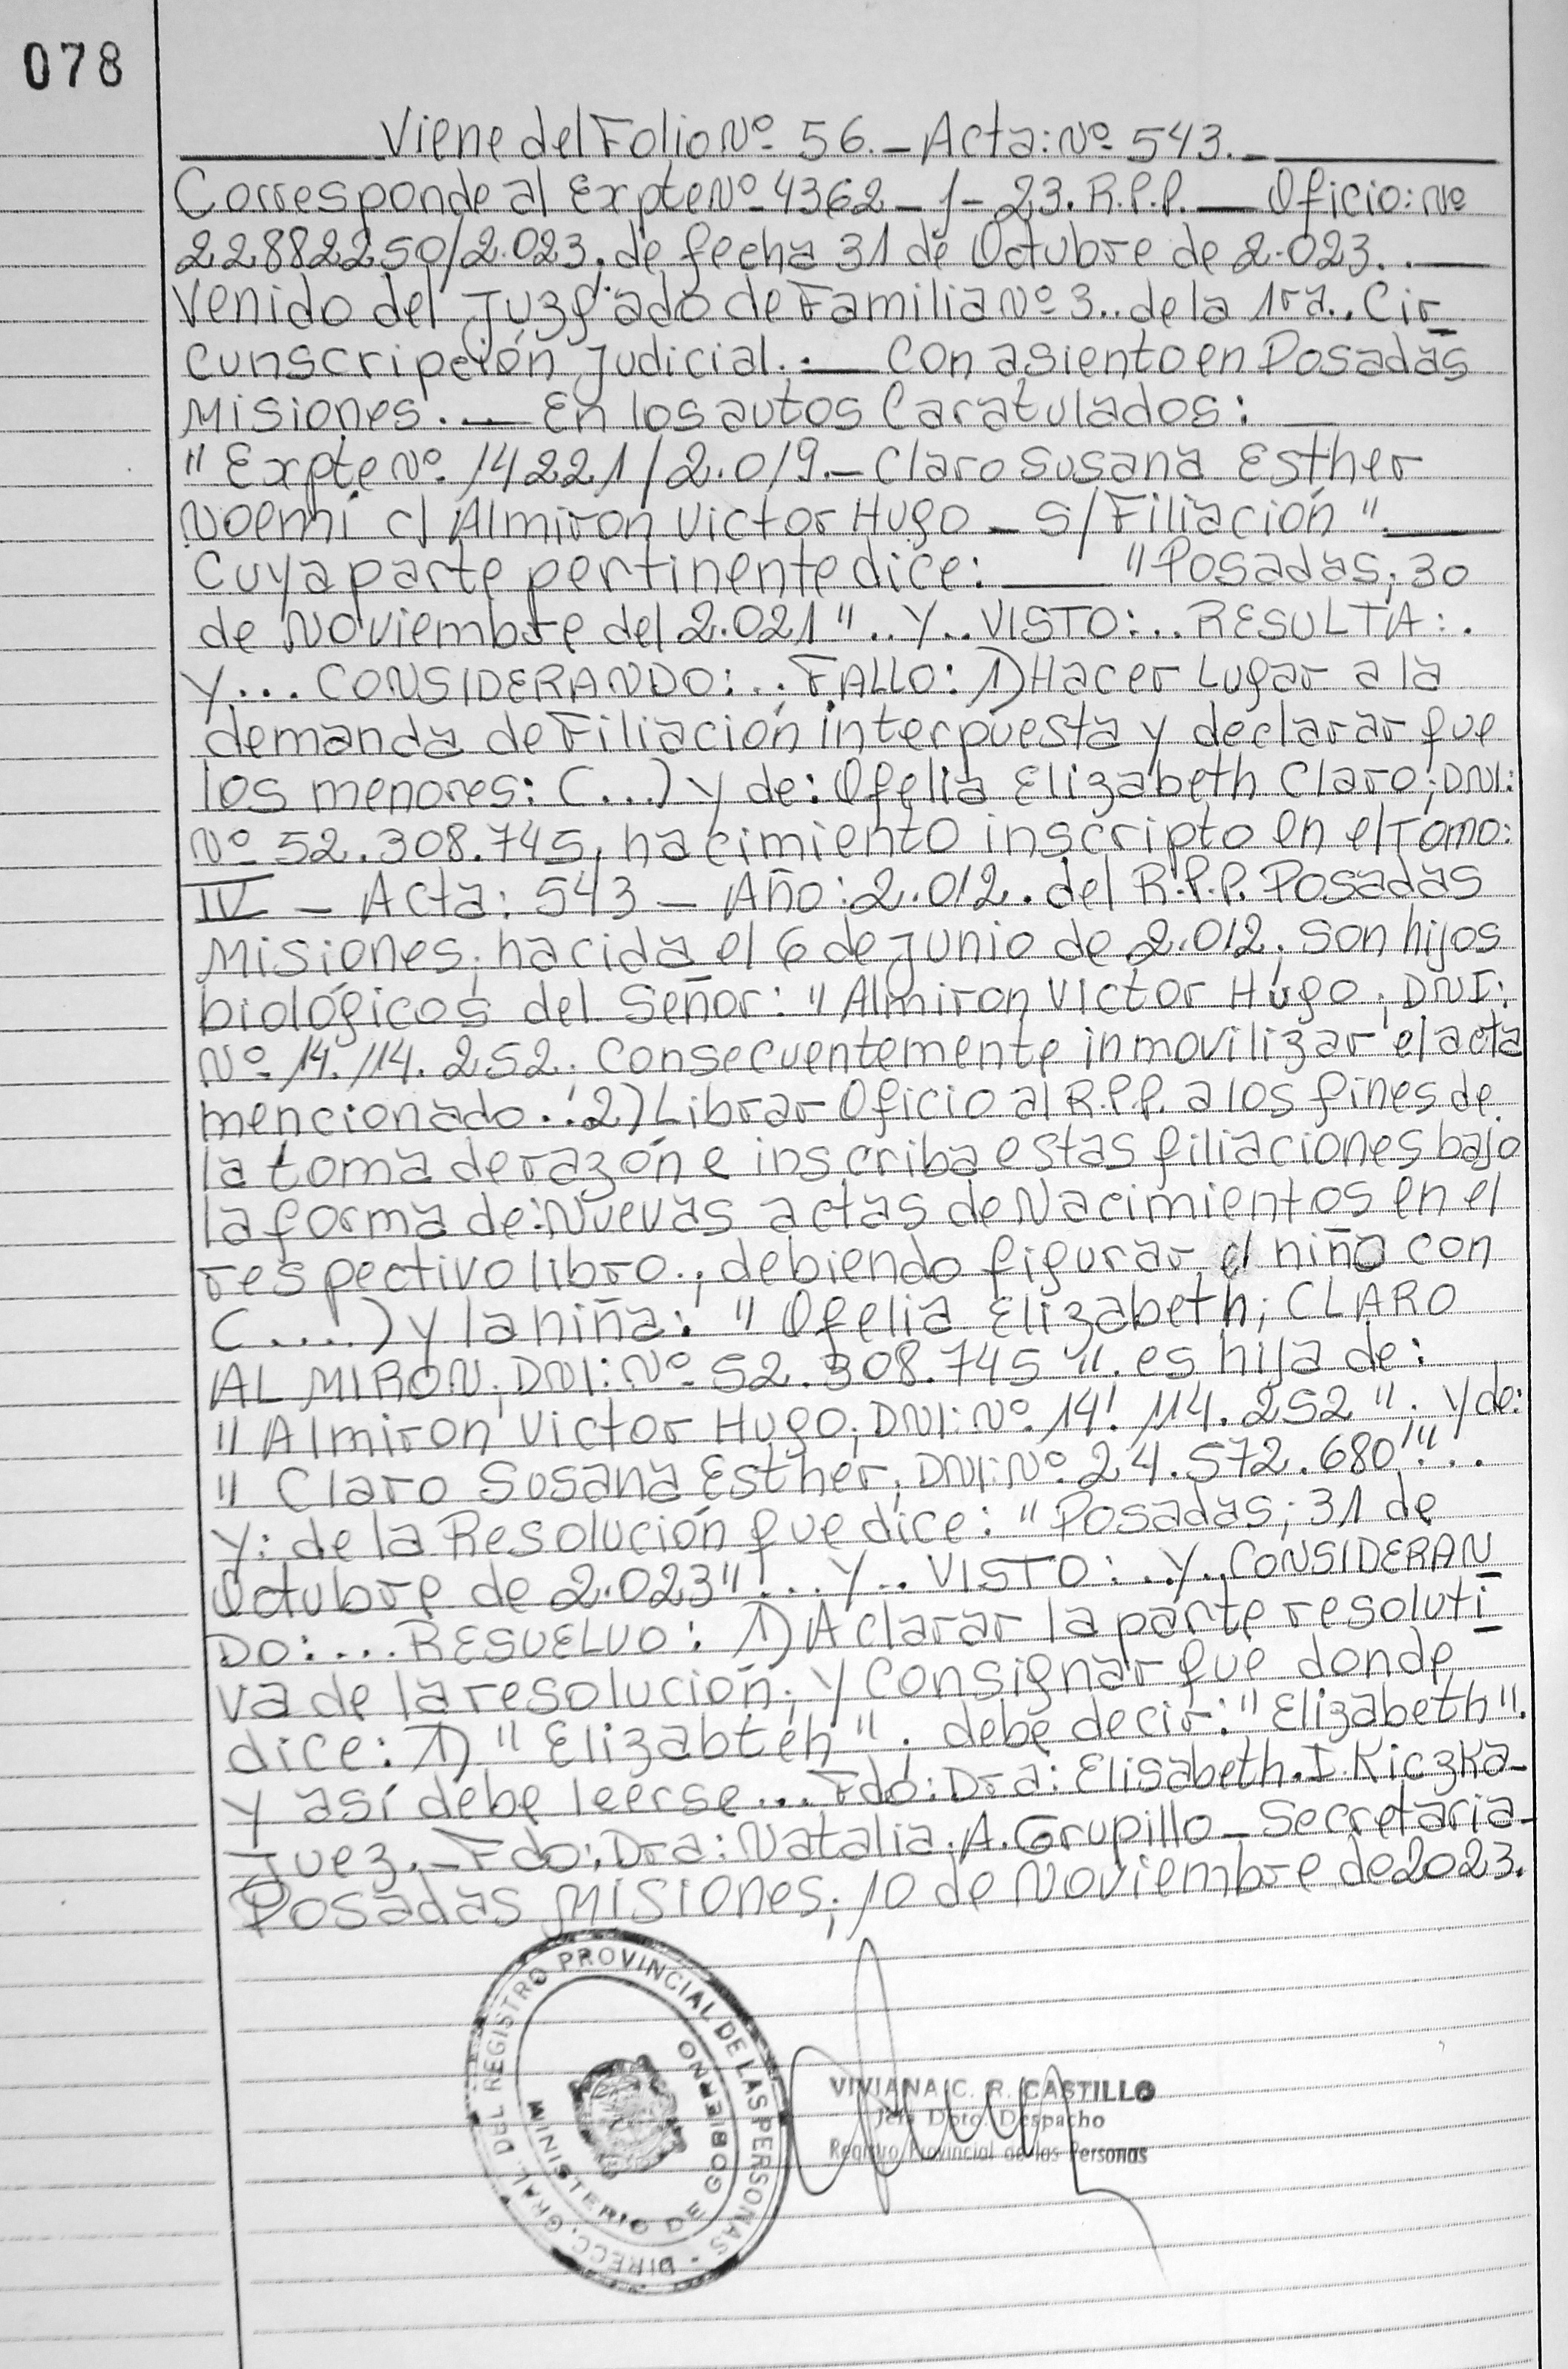 078
Viene del Folio Nº 56.- Acta: Nº 543.-
Corresponde al Expte Nº 4362-1-23. R.P.P. — Oficio: Nº
22882250/2.023; de fecha 31 de Octubre de 2.023. . —
Venido del Juzgado de Familia Nº 3.. de la 1ra.. Cir
cunscripción Judicial. :— Con asiento en Posadas
Misiones. .— En los autos Caratulados: —
" Expte Nº 14221/2.019.- Claro Susana Esther
Noemí c/ Almiron Victor Hugo - S/ Filiación ". —
Cuya parte pertinente dice: — "Posadas; 30
de Noviembre del 2.021 " .. Y .. VISTO: .. RESULTA: .
Y ... CONSIDERANDO: .. FALLO: 1) Hacer Lugar a la
demanda de Filiación interpuesta y declarar que
los menores: (...) y de: Ofelia Elizabeth Claro; DNI:
Nº 52.308.745, nacimiento inscripto en el Tomo:
IV - Acta: 543 - Año: 2.012. del R.P.P. Posadas
Misiones; nacida el 6 de Junio de 2.012; son hijos
biológicos del Señor: " Almiron Victor Hugo; DNI:
Nº 14.114.252. Consecuentemente inmovilizar el acta
mencionado. . 2) Librar Oficio al R.P.P. a los fines de
la toma de razón e inscriba estas filiaciones bajo
la forma de: Nuevas actas de Nacimientos en el
respectivo libro.; debiendo figurar el niño con
(....) y la niña: " Ofelia Elizabeth; CLARO
ALMIRON; DNI: Nº 52.308.745 ". es hija de:
" Almiron Victor Hugo; DNI: Nº 14.114.252 ". y de:
" Claro Susana Esther; DNI: Nº 24.572.680 "...
Y: de la Resolución que dice: " Posadas; 31 de
Octubre de 2.023" ... Y .. VISTO: .. Y .. CONSIDERAN
DO: .... RESUELVO: 1) Aclarar la parte resoluti
va de la resolución; y consignar que donde
dice: 1) " Elizabteh "; debe decir: " Elizabeth ".
Y así debe leerse... Fdo: Dra: Elisabeth. I. Kiczka-
Juez.- Fdo: Dra: Natalia. A. Grupillo - Secretaria-
Posadas Misiones; 10 de Noviembre de 2023.
DIRECC. GRAL. DEL REGISTRO PROVINCIAL DE LAS PERSONAS
MINISTERIO DE GOBIERNO
VIVIANA C. R. CASTILLO
Jefa Dpto. Despacho
Registro Provincial de las Personas